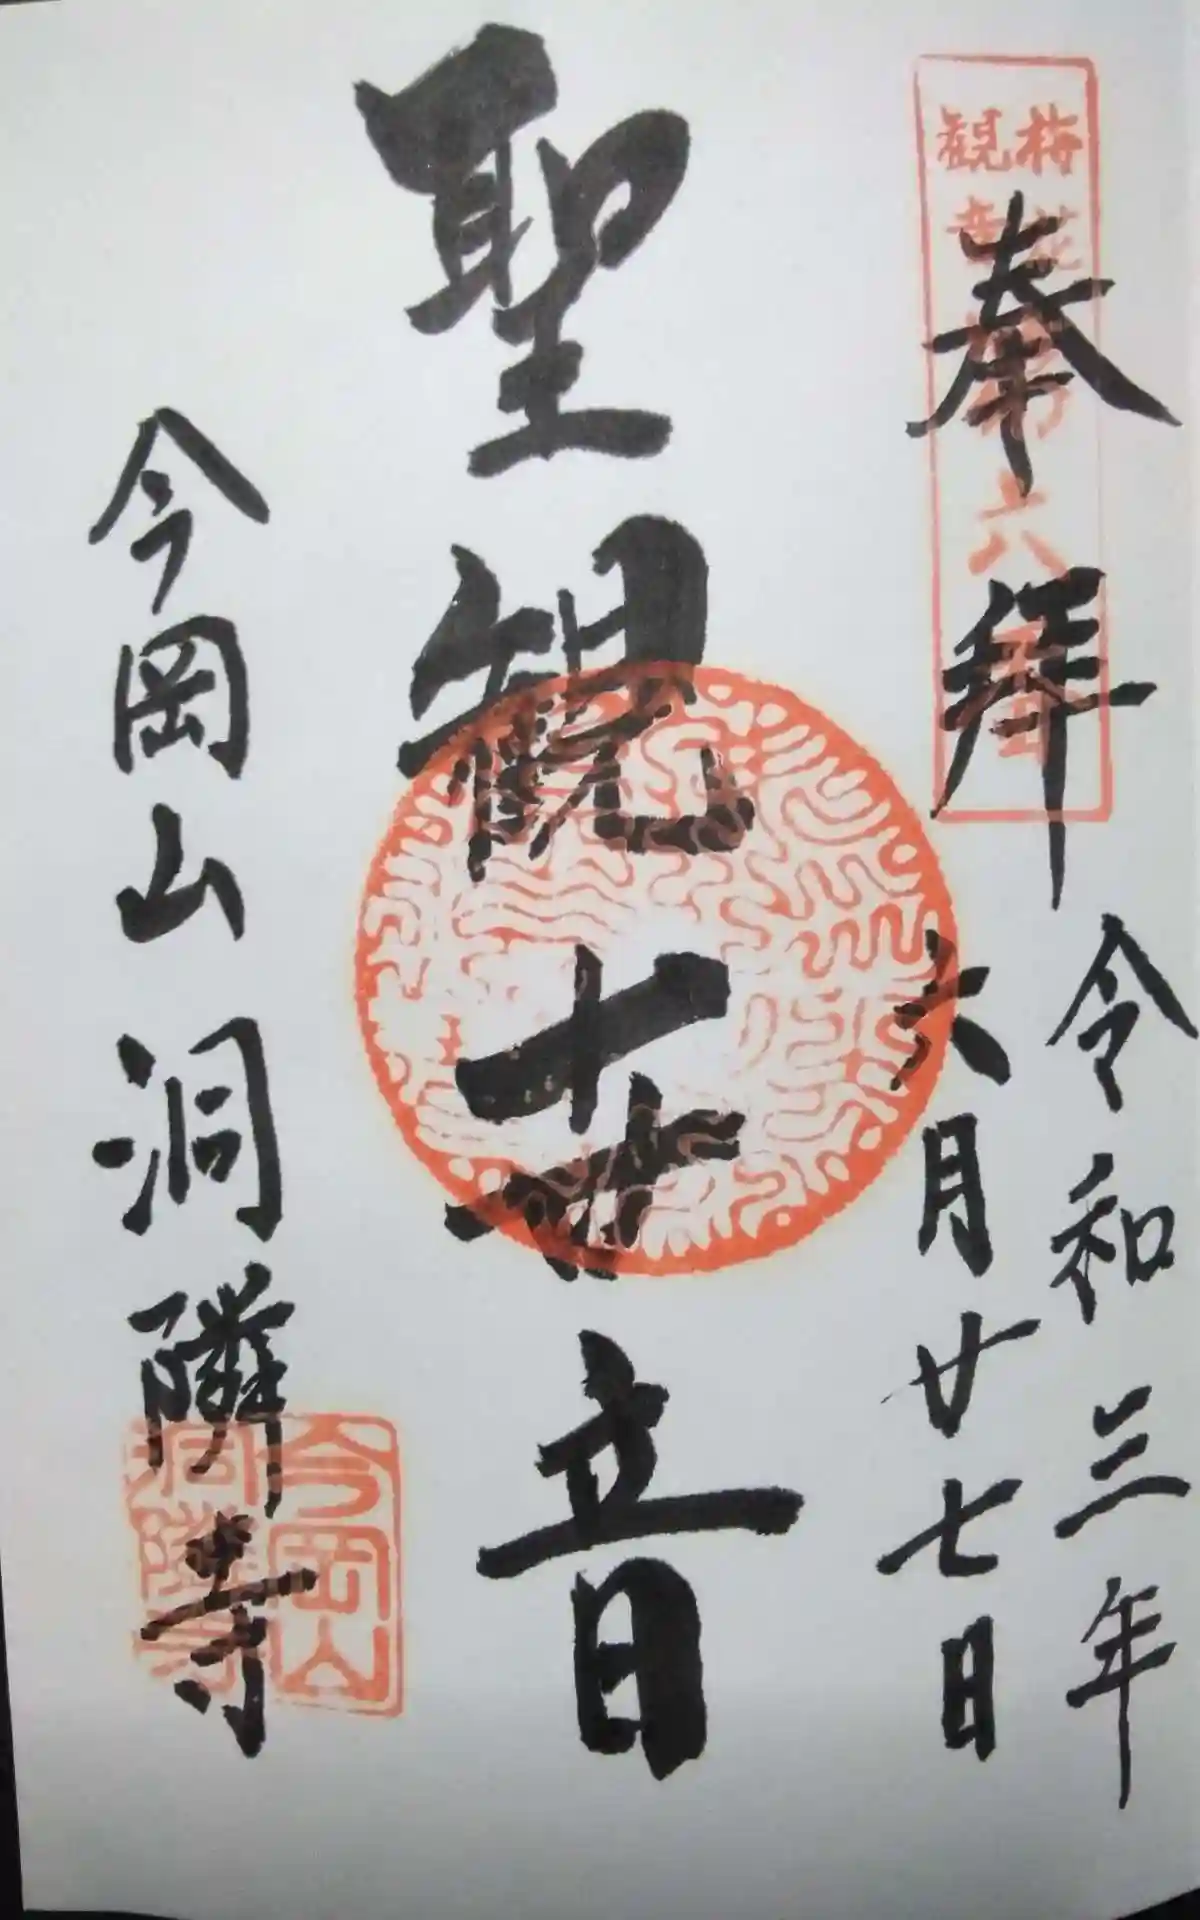 奉拝
令和三年
六月廿七日
聖観世音
今岡山洞隣寺
梅花
観音
第六番
今岡山
洞隣寺